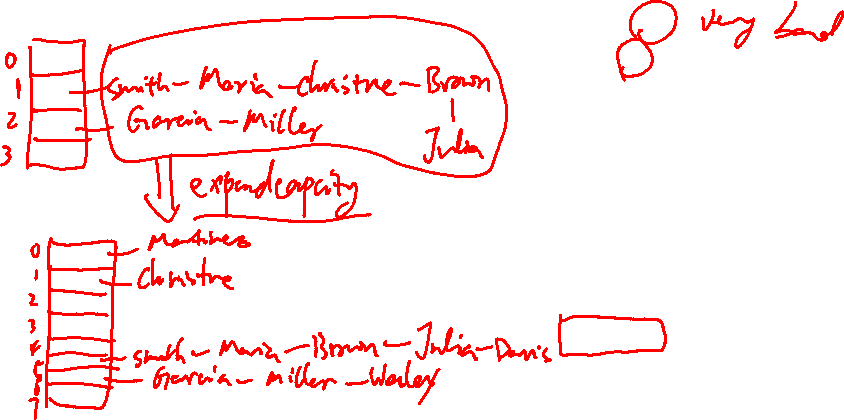 0
1 Smith - Maria - Christne - Brown
2 Garcia - Miller
Julia
3
expandcapacity
0 Martinez
1 Christne
2
3
4
5 Smith - Maria - Brown - Julia - Davis
6 Garcia - Miller -
7
Very